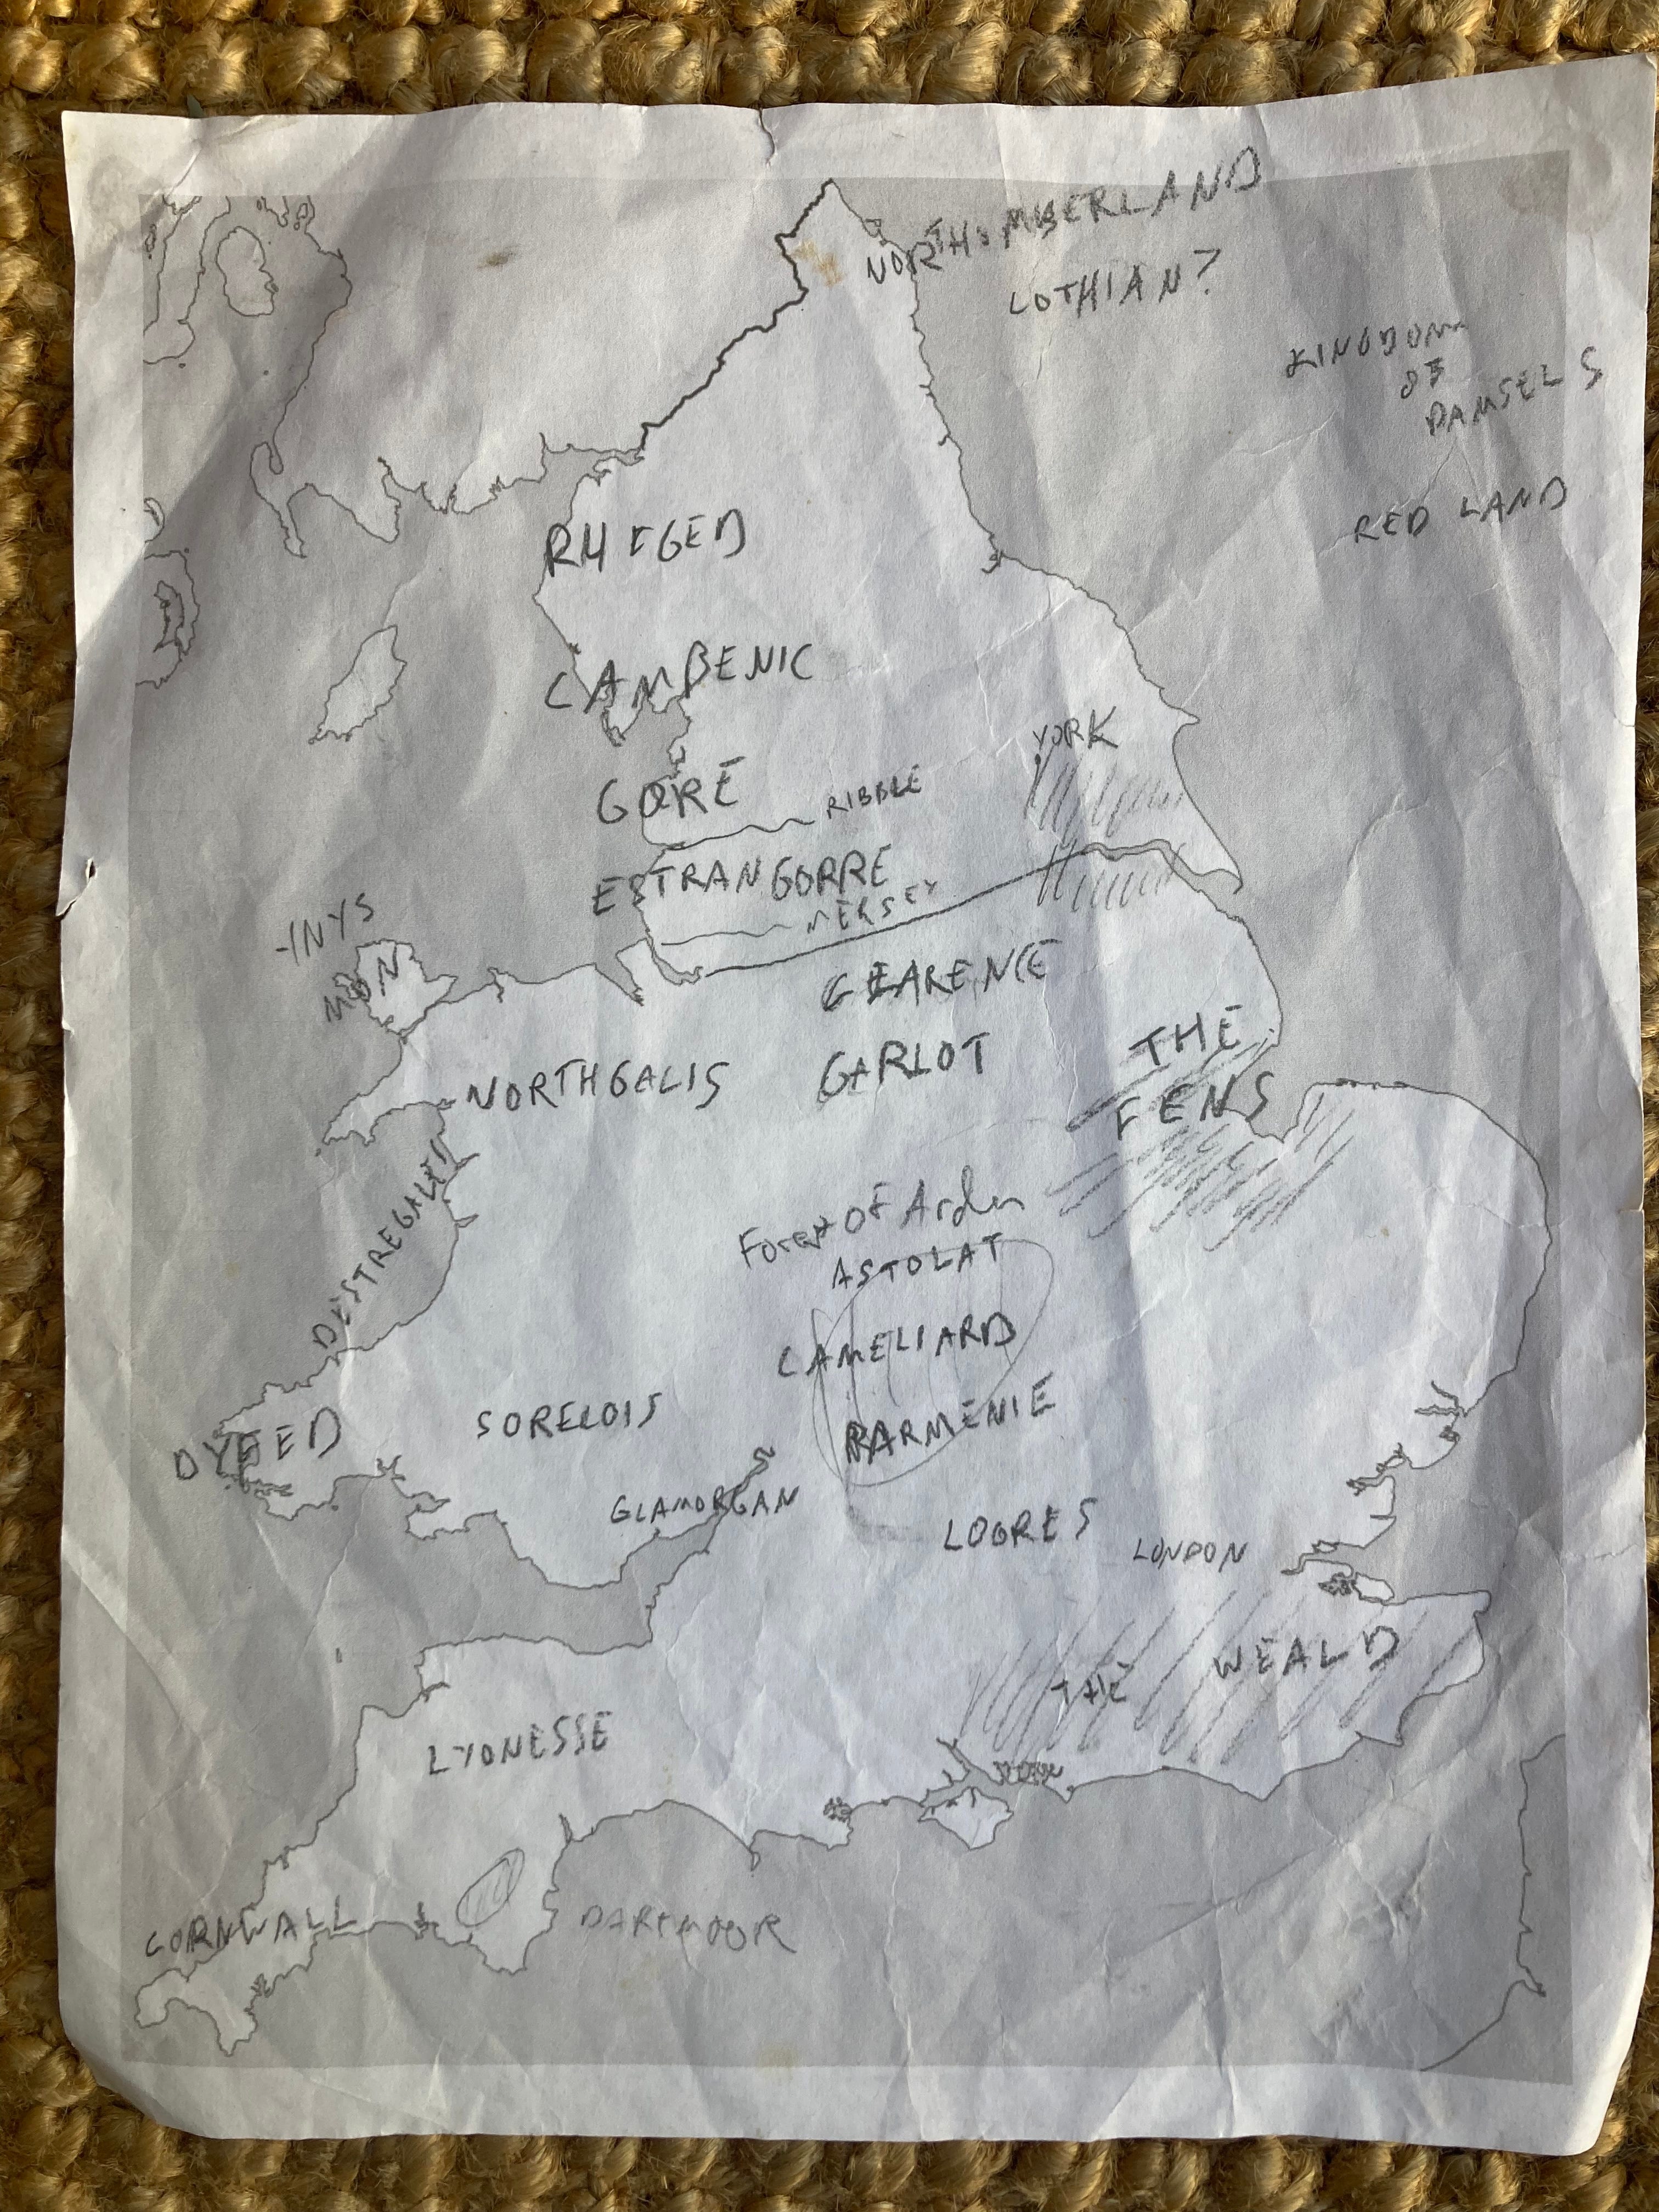 NORTHUMBERLAND
LOTHIAN?
KINGDOM
OF
DAMSELS
RED LAND
RHEGED
CAMBENIC
YORK
GORE
RIBBLE
ESTRANGORRE
MERSEY
YNYS
MON
CLARENCE
GARLOT
THE
FENS
NORTHGALIS
DESTREGALES
Forest Of Arden
ASTOLAT
CAMELIARD
BARMENIE
SORELOIS
DYFED
GLAMORGAN
LOGRES
LONDON
THE WEALD
LYONESSE
CORNWALL
DARTMOOR